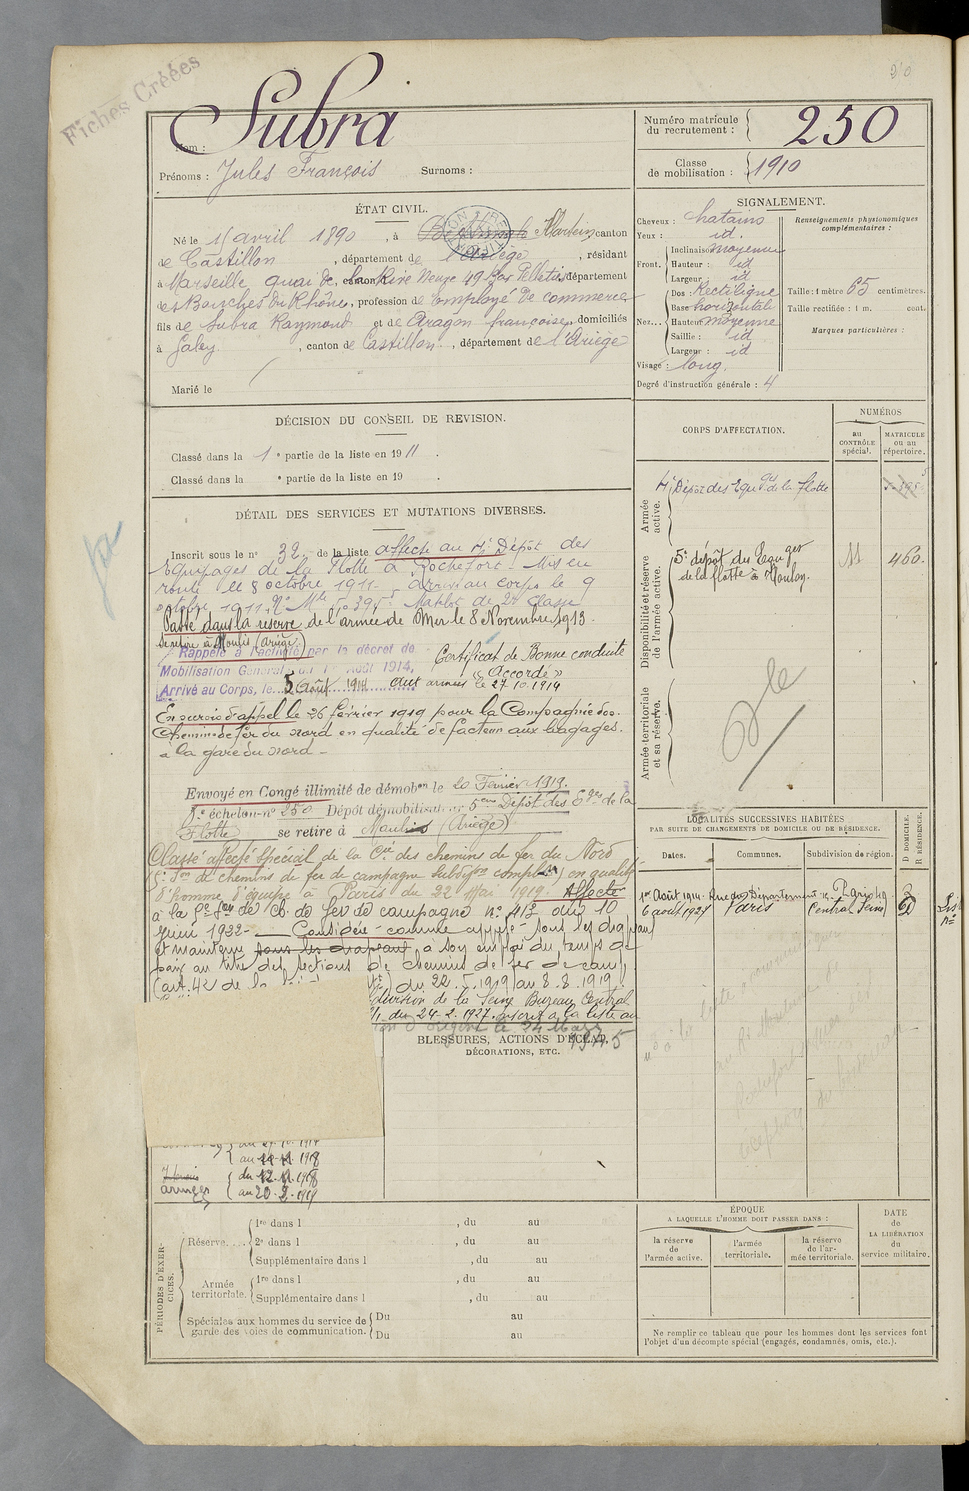 Fiches Créées
Subra
Nom :
Prénoms : Jules François Surnoms :
Numéro matricule du recrutement : 250
Classe de mobilisation : 1910
ÉTAT CIVIL.
Né le 11 avril 1890, à canton
de Castillon, département de l'Ariège, résidant
à Marseille, quai de Rive Neuve 49 département
des Bouches du Rhône, profession de employé de commerce
fils de Subra Raymond et de Aragon françoise, domiciliés
à Galey, canton de Castillon, département de l'Ariège
Marié le
SIGNALEMENT.
Cheveux : chatains
Yeux : id.
Front. Inclinaison moyenne
Hauteur : id
Largeur : id
Nez... Dos : Rectiligne
Base : horizontale
Hauteur : moyenne
Saillie : id
Largeur : id
Visage : long.
Degré d'instruction générale : 4
Renseignements physionomiques complémentaires :
Taille : 1 mètre 65 centimètres.
Taille rectifiée : 1 m. cent.
Marques particulières :
DÉCISION DU CONSEIL DE REVISION.
Classé dans la 1e partie de la liste en 1911.
Classé dans la e partie de la liste en 19 .
DÉTAIL DES SERVICES ET MUTATIONS DIVERSES.
Inscrit sous le n° 32 de la liste affecté au 4e Dépôt des
Equipages de la Flotte à Rochefort. Mis en
route le 8 octobre 1911. Arrivé au corps le 9
octobre 1911. Matelot de 2e classe
Passé dans la réserve de l'armée de Mer le 8 Novembre 1913.
se retire à Moulis (Ariège)
Rappelé à l'activité par le décret de
Mobilisation Générale du 1er Août 1914,
Arrivé au Corps, le 5 Août 1914 aux armées le 27.10.1914
Certificat de Bonne conduite
"Accordé"
En sursis d'appel le 26 février 1919 pour la Compagnie des
Chemins de fer du Nord en qualité de facteur aux bagages
à la gare du Nord -
Envoyé en Congé illimité de démobon le 20 Février 1919.
échelon n° 250 Dépôt démobilisateur 5eme Dépôt des Eges de la
Flotte se retire à Moulis (Ariège)
Classé affecté spécial de la Cie des chemins de fer du Nord
5e Son de chemins de fer de campagne Subdivon complre en qualité
d'homme d'équipe à Paris du 22 Mai 1919. Affecté
à la 5e Son de Ch. de fer de campagne n° 413 du 10
Juin 1922 - Considéré comme appelé sous les drapeaux
et maintenu sous les drapeaux à son emploi du temps de
paix au titre des sections de chemins de fer de camp.
(art. 42 de la du 22.5.1919 au 8.8.1919.
division de la Seine Bureau Central
du 24-2.1927. inscrit à la liste au
le 24 Mars
1945
BLESSURES, ACTIONS D'ÉCLAT,
DÉCORATIONS, ETC.
CORPS D'AFFECTATION.
NUMÉROS
au CONTRÔLE spécial.
MATRICULE ou au répertoire.
Armée active.
4e Dépôt des Equges de la flotte
Disponibilité et réserve de l'armée active.
5e dépôt des Equges
de la flotte à Toulon. 460.
Armée territoriale et sa réserve.
LOCALITÉS SUCCESSIVES HABITÉES
PAR SUITE DE CHANGEMENTS DE DOMICILE OU DE RÉSIDENCE.
Dates. Communes. Subdivision de région. D DOMICILE. R RÉSIDENCE.
1er Août 1914 Rue du Département Paris
6 août 1927 Paris Central Seine D
au 11 1918
du 12.11.1918
armées au 20.2.1919
PÉRIODES D'EXERCICES.
Réserve.... 1re dans l , du au
2e dans l , du au
Supplémentaire dans l , du au
Armée territoriale. 1re dans l , du au
Supplémentaire dans l , du au
Spéciales aux hommes du service de garde des voies de communication. Du au
Du au
ÉPOQUE
A LAQUELLE L'HOMME DOIT PASSER DANS :
la réserve de l'armée active.
l'armée territoriale.
la réserve de l'armée territoriale.
DATE de LA LIBÉRATION du service militaire.
Ne remplir ce tableau que pour les hommes dont les services font
l'objet d'un décompte spécial (engagés, condamnés, omis, etc.).